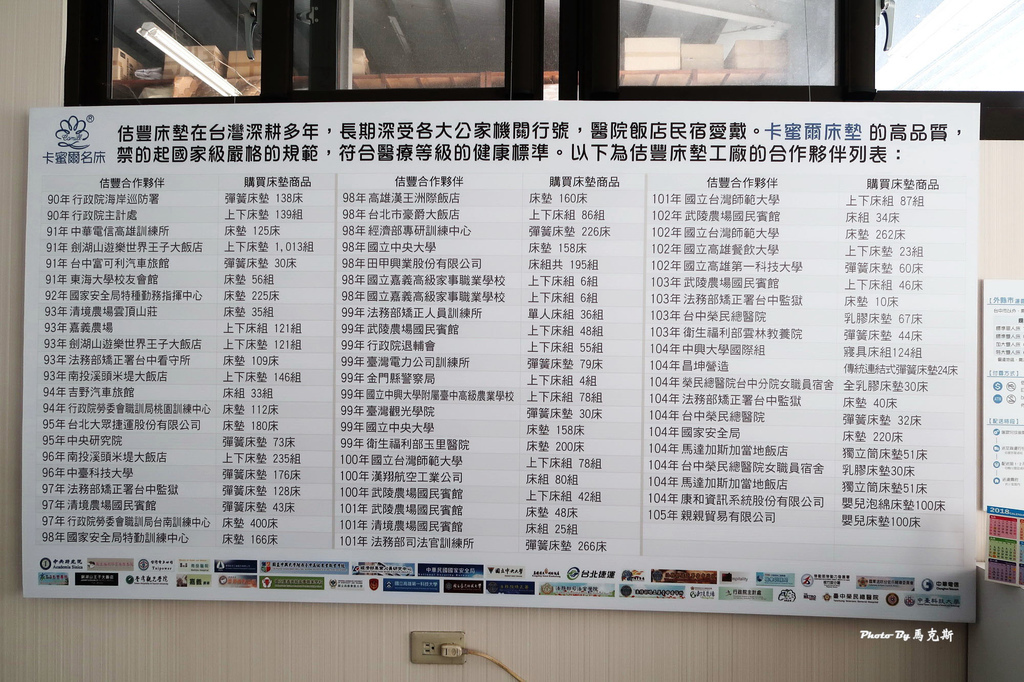 卡蜜爾名床
佶豐床墊在台灣深耕多年，長期深受各大公家機關行號，醫院飯店民宿愛戴。卡蜜爾床墊 的高品質，
禁的起國家級嚴格的規範，符合醫療等級的健康標準。以下為佶豐床墊工廠的合作夥伴列表：
佶豐合作夥伴 購買床墊商品
90年 行政院海岸巡防署 彈簧床墊 138床
90年 行政院主計處 上下床墊 139組
91年 中華電信高雄訓練所 床墊 125床
91年 劍湖山遊樂世界王子大飯店 上下床墊 1,013組
91年 台中富可利汽車旅館 彈簧床墊 30床
91年 東海大學校友會館 床墊 56組
92年 國家安全局特種勤務指揮中心 床墊 225床
93年 清境農場雲頂山莊 床墊 35組
93年 嘉義農場 上下床組 121組
93年 劍湖山遊樂世界王子大飯店 上下床墊 121組
93年 法務部矯正署台中看守所 床墊 109床
93年 南投溪頭米堤大飯店 上下床墊 146組
94年 吉野汽車旅館 床組 33組
94年 行政院勞委會職訓局桃園訓練中心 床墊 112床
95年 台北大眾捷運股份有限公司 床墊 180床
95年 中央研究院 彈簧床墊 73床
96年 南投溪頭米堤大飯店 上下床墊 235組
96年 中臺科技大學 彈簧床墊 176床
97年 法務部矯正署台中監獄 彈簧床墊 128床
97年 清境農場國民賓館 彈簧床墊 43床
97年 行政院勞委會職訓局台南訓練中心 床墊 400床
98年 國家安全局特勤訓練中心 床墊 166床
佶豐合作夥伴 購買床墊商品
98年 高雄漢王洲際飯店 床墊 160床
98年 台北市豪爵大飯店 上下床組 86組
98年 經濟部專研訓練中心 彈簧床墊 226床
98年 國立中央大學 床墊 158床
98年 田甲興業股份有限公司 床組共 195組
98年 國立嘉義高級家事職業學校 上下床組 6組
98年 國立嘉義高級家事職業學校 上下床組 6組
99年 法務部矯正人員訓練所 單人床組 36組
99年 武陵農場國民賓館 上下床組 48組
99年 行政院退輔會 上下床組 55組
99年 臺灣電力公司訓練所 彈簧床墊 79床
99年 金門縣警察局 上下床組 4組
99年 國立中興大學附屬臺中高級農業學校 上下床組 78組
99年 臺灣觀光學院 彈簧床墊 30床
99年 國立中央大學 床墊 158床
99年 衛生福利部玉里醫院 床墊 200床
100年 國立台灣師範大學 上下床組 78組
100年 漢翔航空工業公司 床組 80組
100年 武陵農場國民賓館 上下床組 42組
101年 武陵農場國民賓館 床墊 48床
101年 清境農場國民賓館 床組 25組
101年 法務部司法官訓練所 彈簧床墊 266床
佶豐合作夥伴 購買床墊商品
101年 國立台灣師範大學 上下床組 87組
102年 武陵農場國民賓館 床組 34床
102年 國立台灣師範大學 床墊 262床
102年 國立高雄餐飲大學 上下床墊 23組
102年 國立高雄第一科技大學 彈簧床墊 60床
103年 武陵農場國民賓館 上下床墊 46床
103年 法務部矯正署台中監獄 床墊 10床
103年 台中榮民總醫院 乳膠床墊 67床
103年 衛生福利部雲林教養院 彈簧床墊 44床
104年 中興大學國際組 寢具床組124組
104年 昌坤營造 傳統連結式彈簧床墊24床
104年 榮民總醫院台中分院女職員宿舍 全乳膠床墊30床
104年 法務部矯正署台中監獄 床墊 40床
104年 台中榮民總醫院 彈簧床墊 32床
104年 國家安全局 床墊 220床
104年 馬達加斯加當地飯店 獨立筒床墊51床
104年 台中榮民總醫院女職員宿舍 乳膠床墊30床
104年 馬達加斯加當地飯店 獨立筒床墊51床
104年 康和資訊系統股份有限公司 嬰兒泡綿床墊100床
105年 親親貿易有限公司 嬰兒床墊100床
中央研究院
台北捷運
中華電信
臺中榮民總醫院
中臺科技大學
Photo By 馬克斯